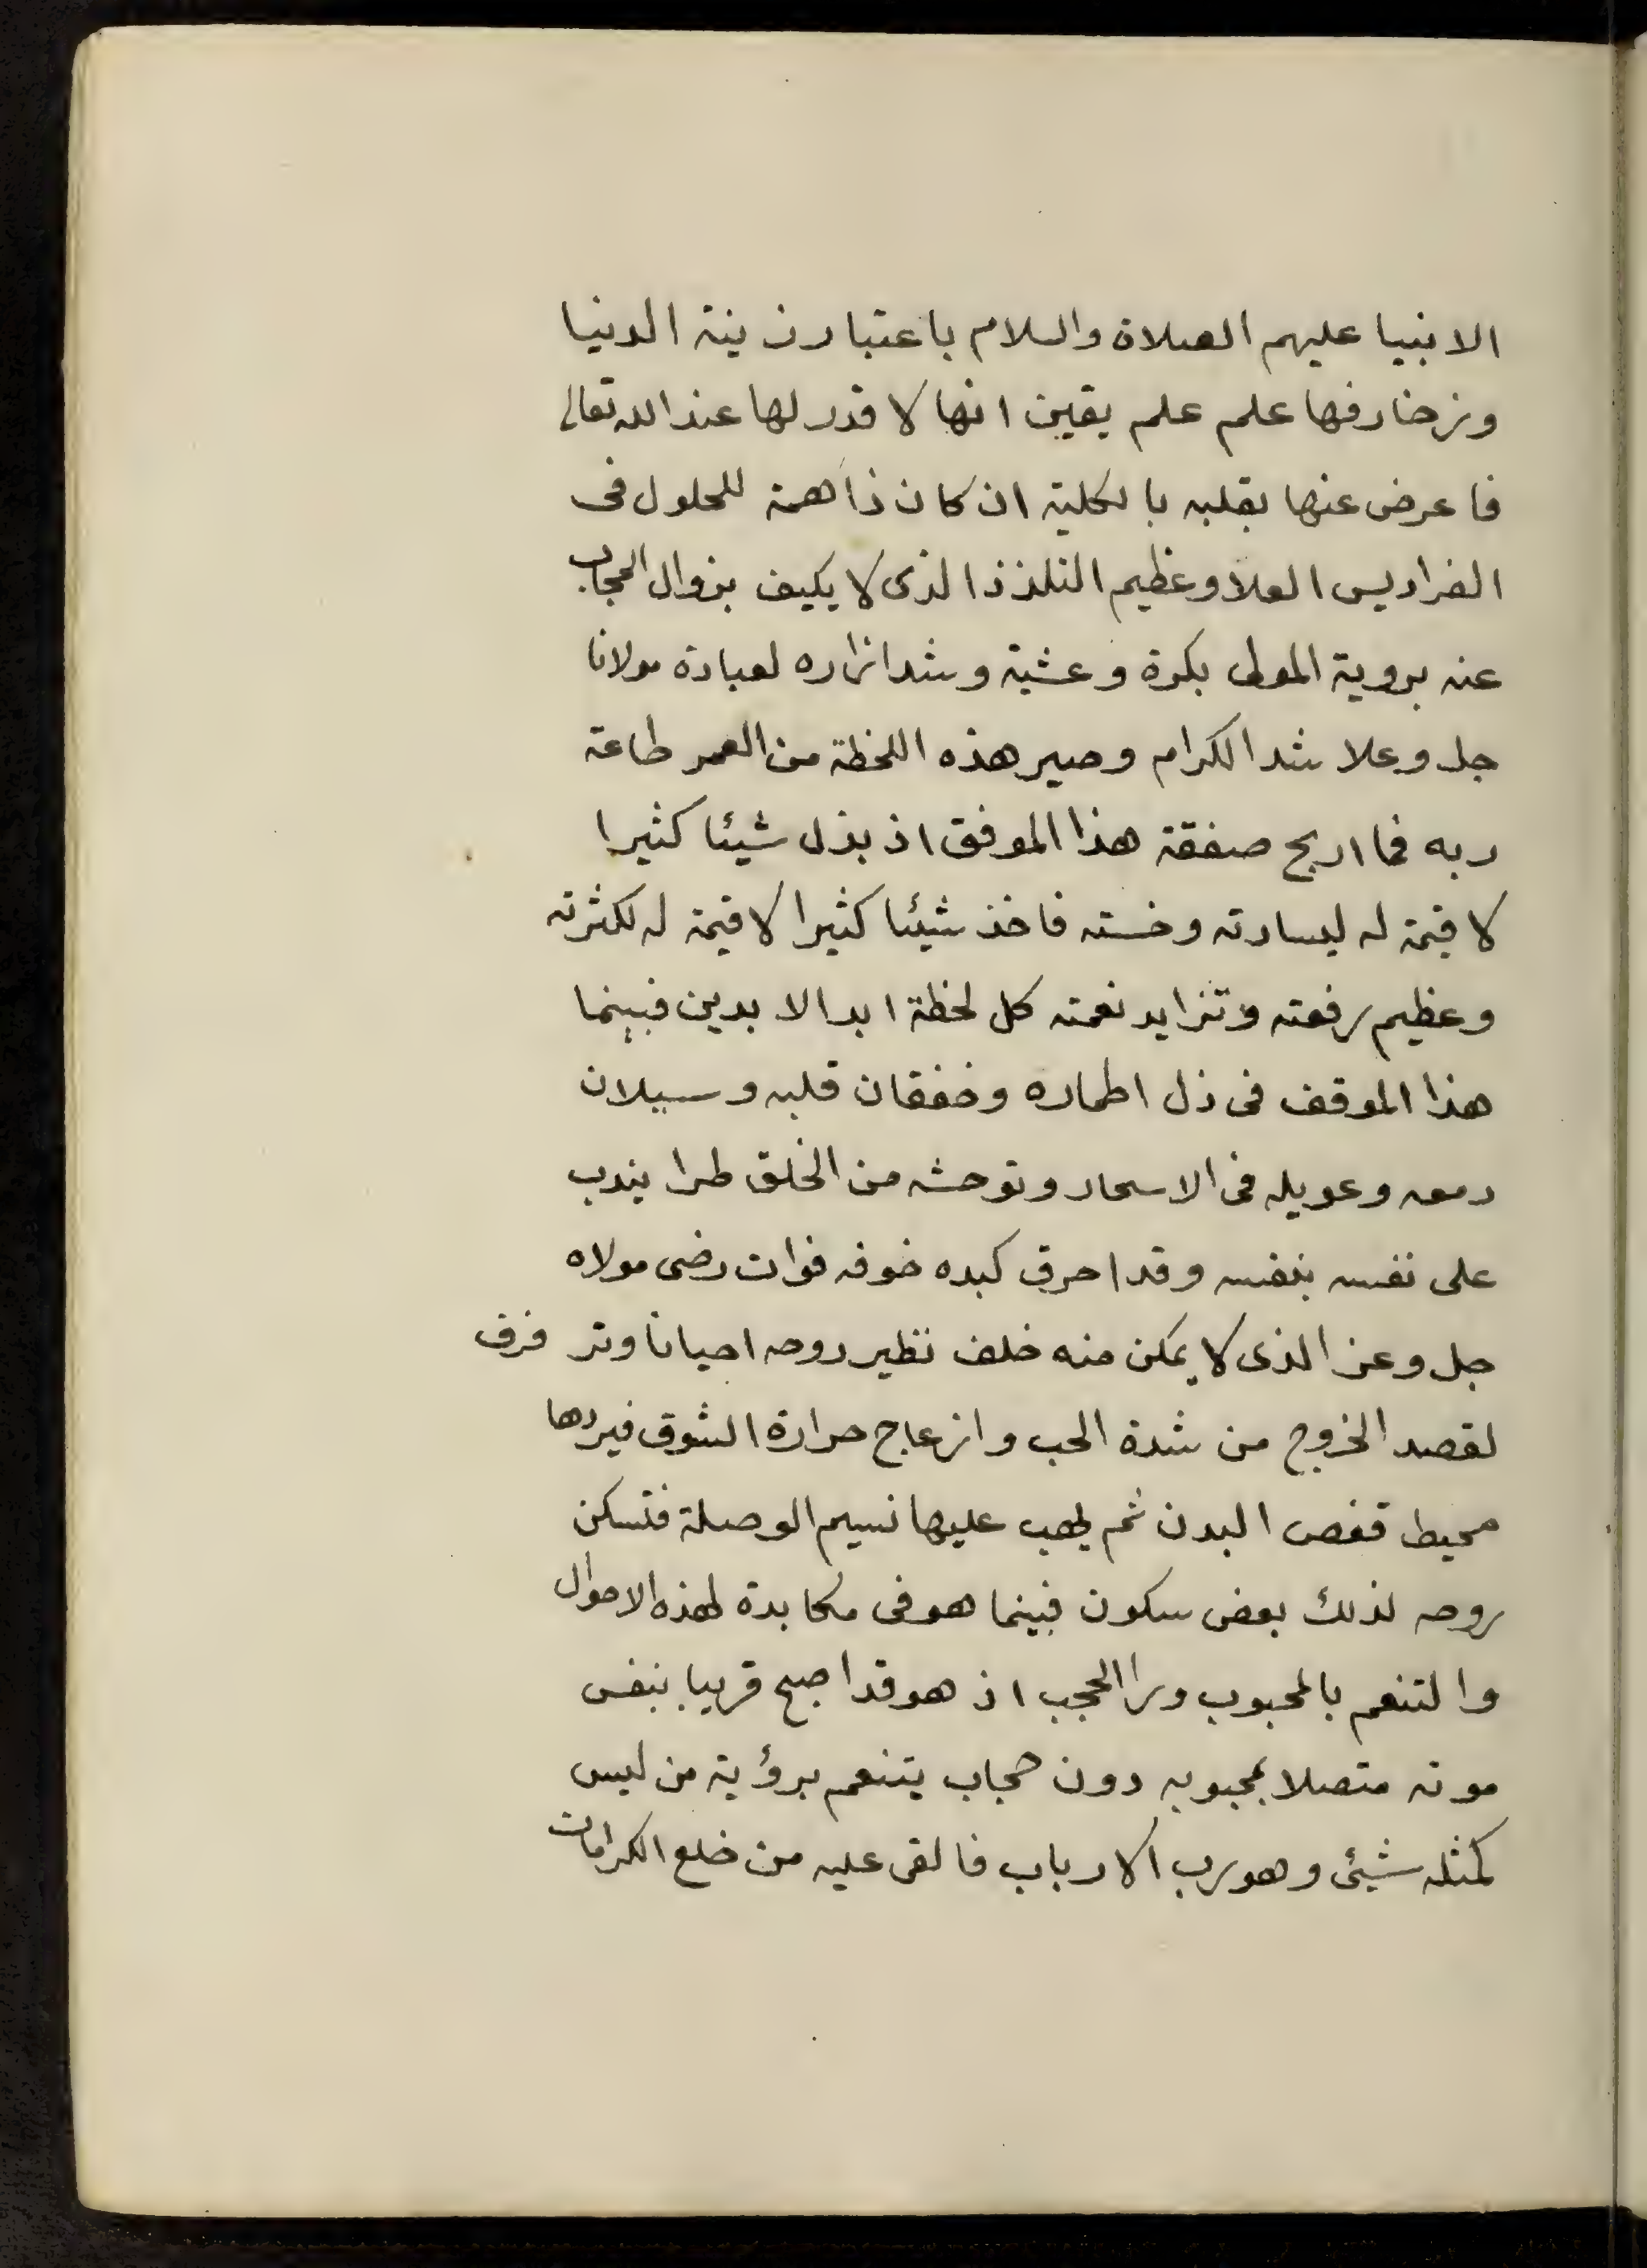 الانبيا عليهم الصلاة والسلام باعتبار زينة الدنيا
وزخارفها علم علم يقين انها لا قدر لها عند الله تعالى
فاعرض عنها بقلبه بالكلية ان كان ذا همة للحلول فى
الفراديس العلا وعظيم التلذذ الذى لا يكيف بزوال الحجاب
عنه بروية المولى بكرة وعشية وشد ازاره لعبادة مولانا
جل وعلا شد الكرام وصير هذه اللحظة من العمر طاعة
ربه فما اربح صفقة هذا الموفق اذ بذل شيئا كثيرا
لا قيمة له ليسارته وخسته فاخذ شيئا كثيرا لا قيمة له لكثرته
وعظيم رفعته وتزايد نعمته كل لحظة ابد الابدين فبينما
هذا الموقف فى ذل اطماره وخفقان قلبه وسيلان
دمعه وعويله فى الاسحار وتوحشه من الخلق طرا يندب
على نفسه بنفسه وقد احرق كبده خوفه فوات رضى مولاه
جل وعز الذى لا يمكن منه خلف نظير روحه احيانا وتر فرف
لقصد الخروج من شدة الحب وانزعاج حرارة الشوق فيردها
محيط قفص البدن ثم يهب عليها نسيم الوصلة فتسكن
روحه لذلك بعض سكون فبينما هو فى مكابدة لهذه الاحوال
والتنعم بالمحبوب ورا الحجب اذ هو قد اصبح قريبا بنفس
موته متصلا بمحبوبه دون حجاب يتنعم برؤية من ليس
كمثله شيئ وهو رب الارباب فالقى عليه من خلع الكرامات